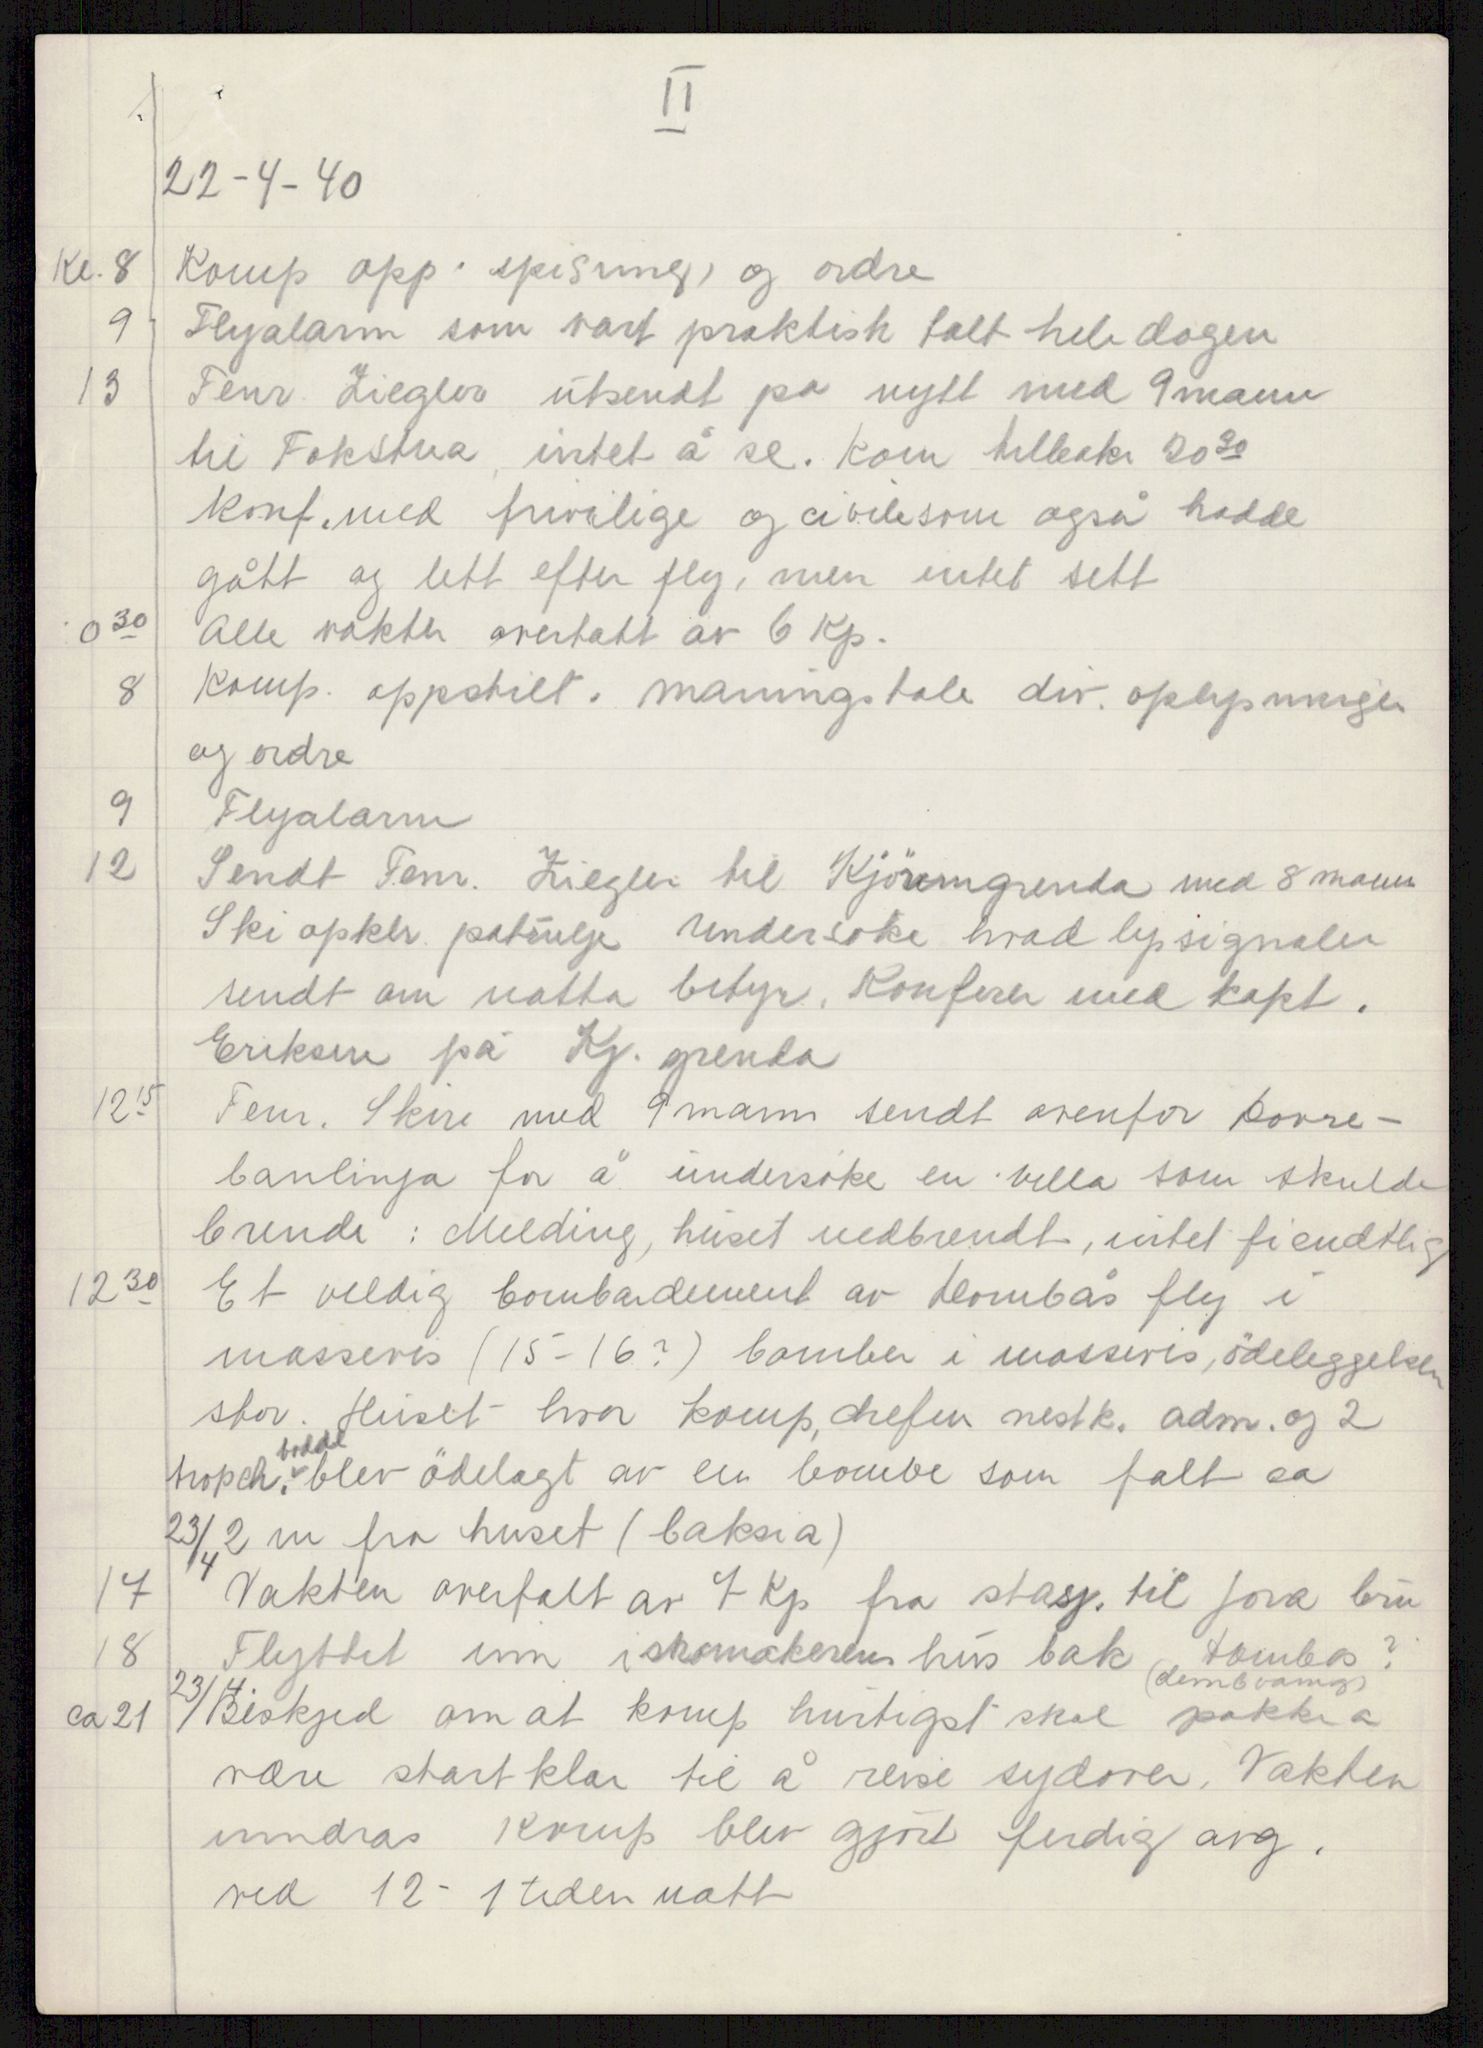 II
22-4-40
Kl. 8 Komp opp. spisning, og ordre
9 Flyalarm som vart praktisk talt hele dagen
13 Fenr. Ziegler utsendt på nytt med 9 mann
til Fokstua, intet å se. Kom tilbake 20 30
Konf. med frivilige og civile som også hadde
gått og lett efter fly, men intet sett
0 30 Alle vakter overtatt av 6 Kp.
8 Komp. oppstilt. Maningstale div. oplysninger
og ordre
9 Flyalarm
12 Sendt Fenr. Ziegler til Kjöremgrenda med 8 mann
Ski opklr. patrulje undersöke hvad lyssignaler
sendt om natta betyr. Konferer med kapt.
Eriksen på Kj. grenda
12 15 Fenr. Skire med 9 mann sendt ovenfor Dovre-
banlinja for å undersöke en villa som skulde
brende : Melding, huset nedbrendt, intet fiendtlig
12 30 Et veldig bombardement av Dombås fly i
massevis (15-16?) bomber i massevis, ödeleggelsen
stor. Huset hvor komp, chefen nestk. adm. og 2
tropch. bodde blev ödelagt av en bombe som falt ca
2 m fra huset (baksia)
23/4
17 Vakten overtatt av 7 Kp fra stasj. til Jora bru
18 Flyttet inn i skomakerens hus bak Dombås?
(dombvang)
ca 21 23/4 Beskjed om at komp hurtigst skal pakke a
være startklar til å reise sydover. Vakten
inndras Komp blev gjort ferdig avg.
ved 12-1 tiden natt